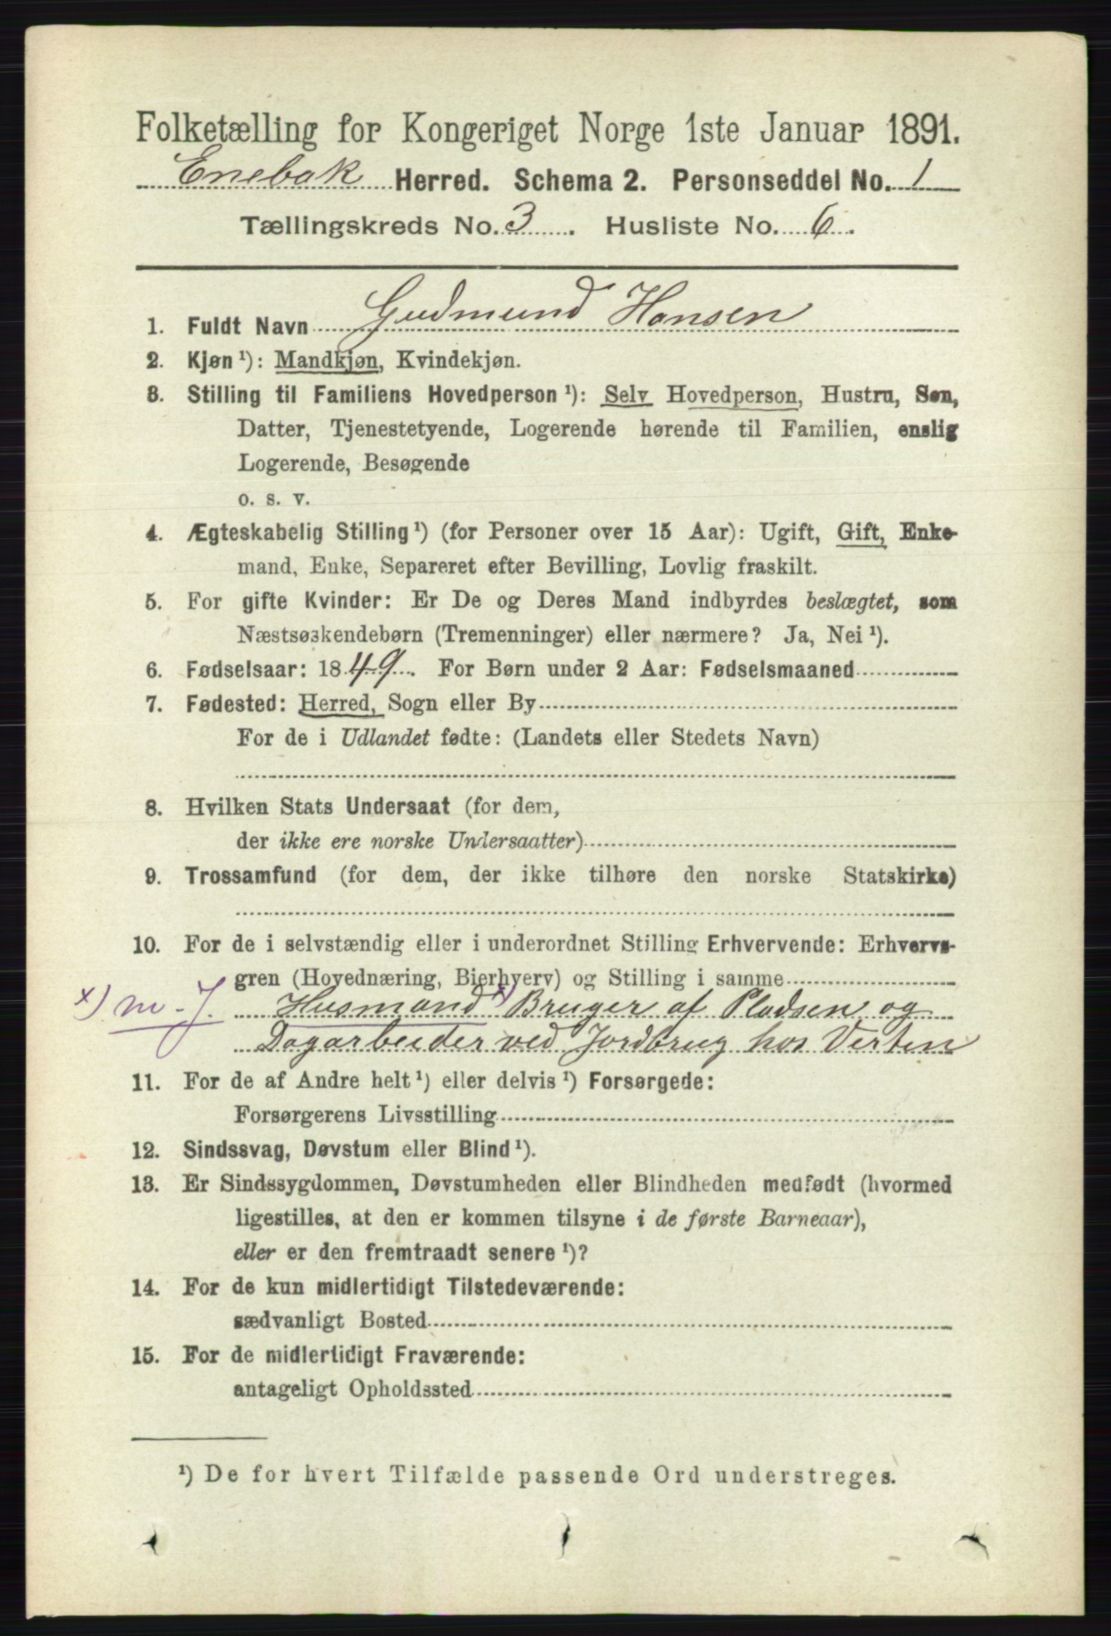 Folketælling for Kongeriget Norge 1ste Januar 1891.
Enebak Herred. Schema 2. Personseddel No. 1
Tællingskreds No. 3. Husliste No. 6.
1. Fuldt Navn Gudmund Hansen
2. Kjøn ¹): Mandkjøn, Kvindekjøn.
3. Stilling til Familiens Hovedperson ¹): Selv Hovedperson, Hustru, Søn,
Datter, Tjenestetyende, Logerende hørende til Familien, enslig
Logerende, Besøgende
o. s. v.
4. Ægteskabelig Stilling ¹) (for Personer over 15 Aar): Ugift, Gift, Enke-
mand, Enke, Separeret efter Bevilling, Lovlig fraskilt.
5. For gifte Kvinder: Er De og Deres Mand indbyrdes beslægtet, som
Næstsøskendebørn (Tremenninger) eller nærmere? Ja, Nei ¹).
6. Fødselsaar: 1849. For Børn under 2 Aar: Fødselsmaaned
7. Fødested: Herred, Sogn eller By
For de i Udlandet fødte: (Landets eller Stedets Navn)
8. Hvilken Stats Undersaat (for dem,
der ikke ere norske Undersaatter)
9. Trossamfund (for dem, der ikke tilhøre den norske Statskirke)
10. For de i selvstændig eller i underordnet Stilling Erhvervende: Erhvervs-
gren (Hovednæring, Bierhverv) og Stilling i samme
x) m - J. Husmand x) Bruger af Pladsen og
Dagarbeider ved Jordbrug hos Verten
11. For de af Andre helt ¹) eller delvis ¹) Forsørgede:
Forsørgerens Livsstilling
12. Sindssvag, Døvstum eller Blind ¹).
13. Er Sindssygdommen, Døvstumheden eller Blindheden medfødt (hvormed
ligestilles, at den er kommen tilsyne i de første Barneaar),
eller er den fremtraadt senere ¹)?
14. For de kun midlertidigt Tilstedeværende:
sædvanligt Bosted
15. For de midlertidigt Fraværende:
antageligt Opholdssted
¹) De for hvert Tilfælde passende Ord understreges.